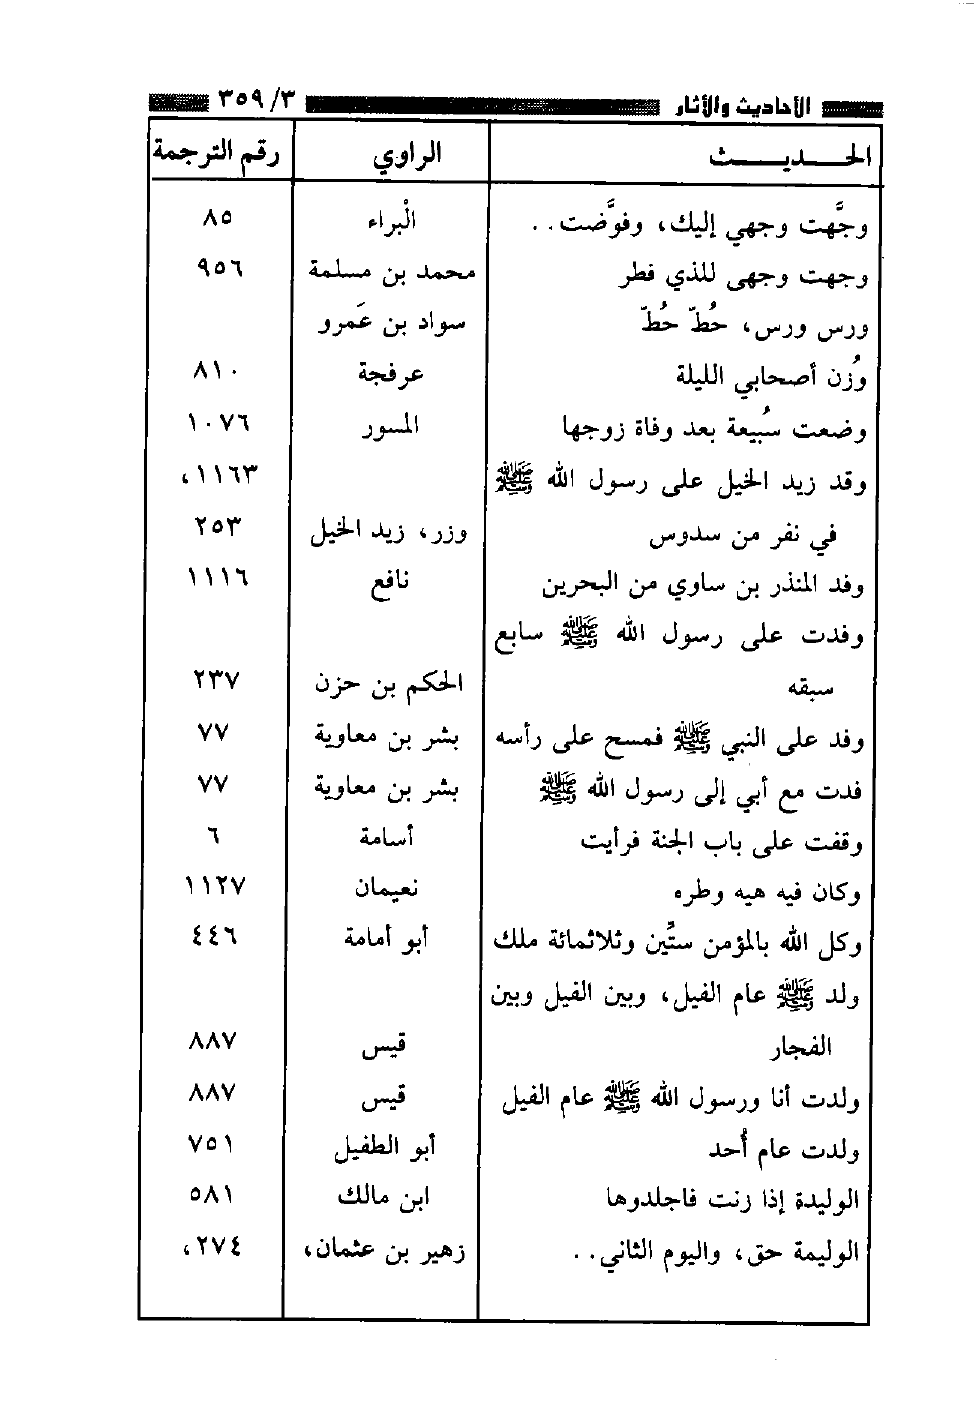 الأحاديث والأثار ٣/ ٣٥٩
الحديث الراوي رقم الترجمة
وجَّهت وجهي إليك، وفوَّضت.. الْبراء ٨٥
وجهت وجهى للذي فطر محمد بن مسلمة ٩٥٦
ورس ورس، حُطّ حُطّ سواد بن عَمرو
وُزن أصحابي الليلة عرفجة ٨١٠
وضعت سُبيعة بعد وفاة زوجها المسور ١٠٧٦
وقد زيد الخيل على رسول الله ﷺ ١١٦٣،
في نفر من سدوس وزر، زيد الخيل ٢٥٣
وفد المنذر بن ساوي من البحرين نافع ١١١٦
وفدت على رسول الله ﷺ سابع
سبقه الحكم بن حزن ٢٣٧
وفد على النبي ﷺ فمسح على رأسه بشر بن معاوية ٧٧
فدت مع أبي إلى رسول الله ﷺ بشر بن معاوية ٧٧
وقفت على باب الجنة فرأيت أسامة ٦
وكان فيه هيه وطره نعيمان ١١٢٧
وكل الله بالمؤمن ستِّين وثلاثمائة ملك أبو أمامة ٤٤٦
ولد ﷺ عام الفيل، وبين الفيل وبين
الفجار قيس ٨٨٧
ولدت أنا ورسول الله ﷺ عام الفيل قيس ٨٨٧
ولدت عام أُحد أبو الطفيل ٧٥١
الوليدة إذا زنت فاجلدوها ابن مالك ٥٨١
الوليمة حق، واليوم الثاني.. زهير بن عثمان، ٢٧٤،